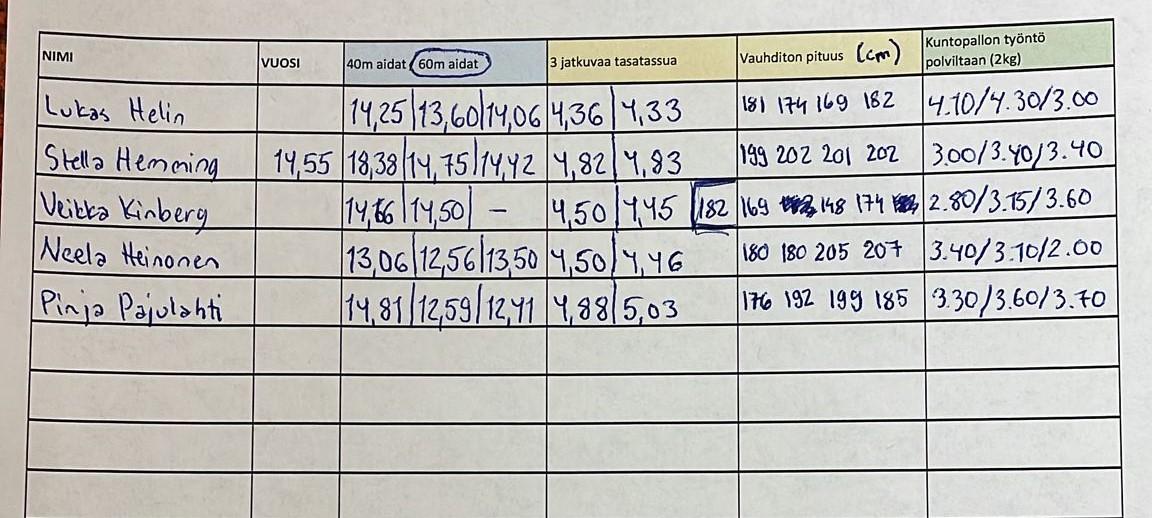 NIMI VUOSI 40m aidat 60m aidat 3 jatkuvaa tasatassua Vauhditon pituus (cm) Kuntopallon työntö polviltaan (2kg)
Lukas Helin 14,25|13,60|14,06 4,36|4,33 181 174 169 182 4.10/4.30/3.00
Stella Hemming 14,55 18,38|14,75|14,42 4,82|4,83 199 202 201 202 3.00/3.40/3.40
Veikka Kinberg 14,66|14,50| – 4,50|4,45 182 169 148 174 2.80/3.15/3.60
Neela Heinonen 13,06|12,56|13,50 4,50|4,46 180 180 205 207 3.40/3.10/2.00
Pinja Pajulahti 14,81|12,59|12,41 4,88|5,03 176 192 199 185 3.30/3.60/3.70